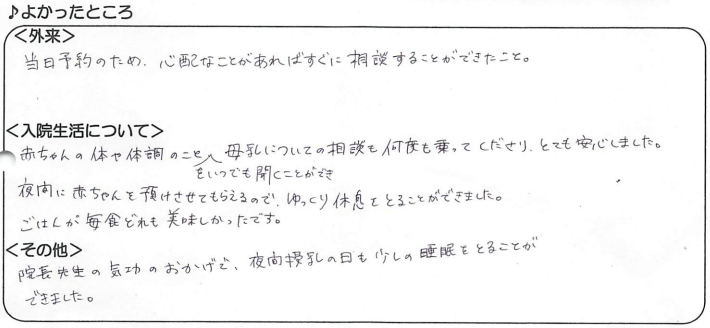 ♪よかったところ
＜外来＞
当日予約のため、心配なことがあればすぐに相談することができたこと。
＜入院生活について＞
赤ちゃんの体や体調のことをいつでも聞くことができ母乳についての相談も何度も乗ってくださり、とても安心しました。
夜間に赤ちゃんを預けさせてもらえるので、ゆっくり休息をとることができました。
ごはんが毎食どれも美味しかったです。
＜その他＞
院長先生の気功のおかげで、夜間授乳の日も少しの睡眠をとることが
できました。